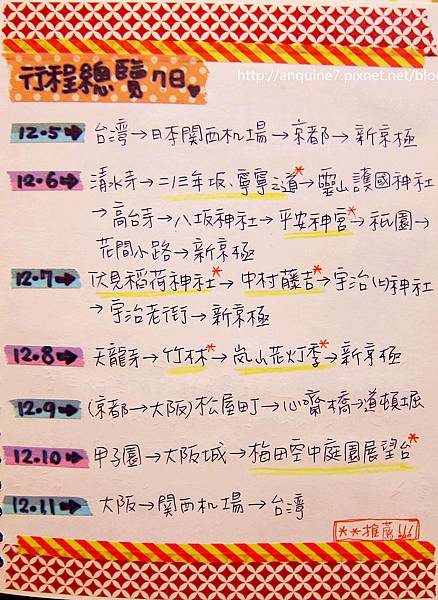 http://anquine7.pixnet.net/blo
行程總覽7日♥
12.5→ 台湾→日本関西机場→京都→新京極
12.6→ 清水寺→二三年坂、寧寧之道*→靈山護國神社
→高台寺→八坂神社→平安神宮*→祇園→
花間小路→新京極
12.7→ 伏見稻荷神社*→中村藤吉*→宇治(上)神社
→宇治老街→新京極
12.8→ 天龍寺→竹林*→嵐山花灯季*→新京極
12.9→ (京都→大阪)松屋町→心齋橋→道頓堀
12.10→ 甲子園→大阪城→梅田空中庭園展望台*
12.11→ 大阪→関西机場→台湾
**推薦